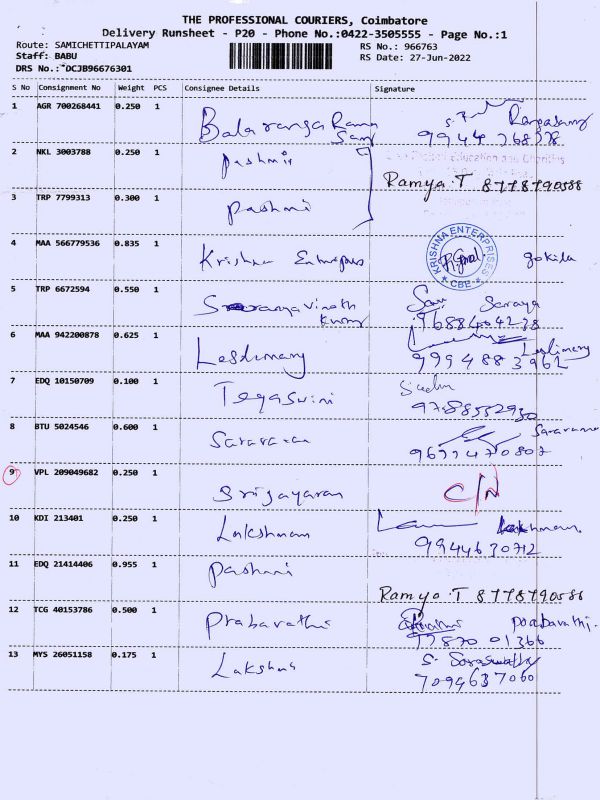 THE PROFESSIONAL COURIERS, Coimbatore
Delivery Runsheet - P20 - Phone No.:0422-3505555 - Page No.:1
Route: SAMICHETTIPALAYAM RS No.: 966763
Staff: BABU RS Date: 27-Jun-2022
DRS No.:*DCJB96676301
S No Consignment No Weight PCS Consignee Details Signature
1 AGR 700268441 0.250 1
Balaranga Rama Rangasamy
Samy
2 NKL 3003788 0.250 1
Pashmi
Ramya.T 8778790588
3 TRP 7799313 0.300 1
Pashmi
4 MAA 566779536 0.835 1
Krishna Enterprises KRISHNA ENTERPRISES * CBE * gokila
5 TRP 6672594 0.550 1
Kumar
6 MAA 942200878 0.625 1
9994883962
7 EDQ 10150709 0.100 1
Tegaswini
8 BTU 5024546 0.600 1
Saravanan
9 VPL 209049682 0.250 1
C/N
10 KDI 213401 0.250 1
Lakshmam
9944630712
11 EDQ 21414406 0.955 1
Pashmi
Ramya.T 8778790588
12 TCG 40153786 0.500 1
Prabavathi
13 MYS 26051158 0.175 1
S. Saraswathy
7094637060